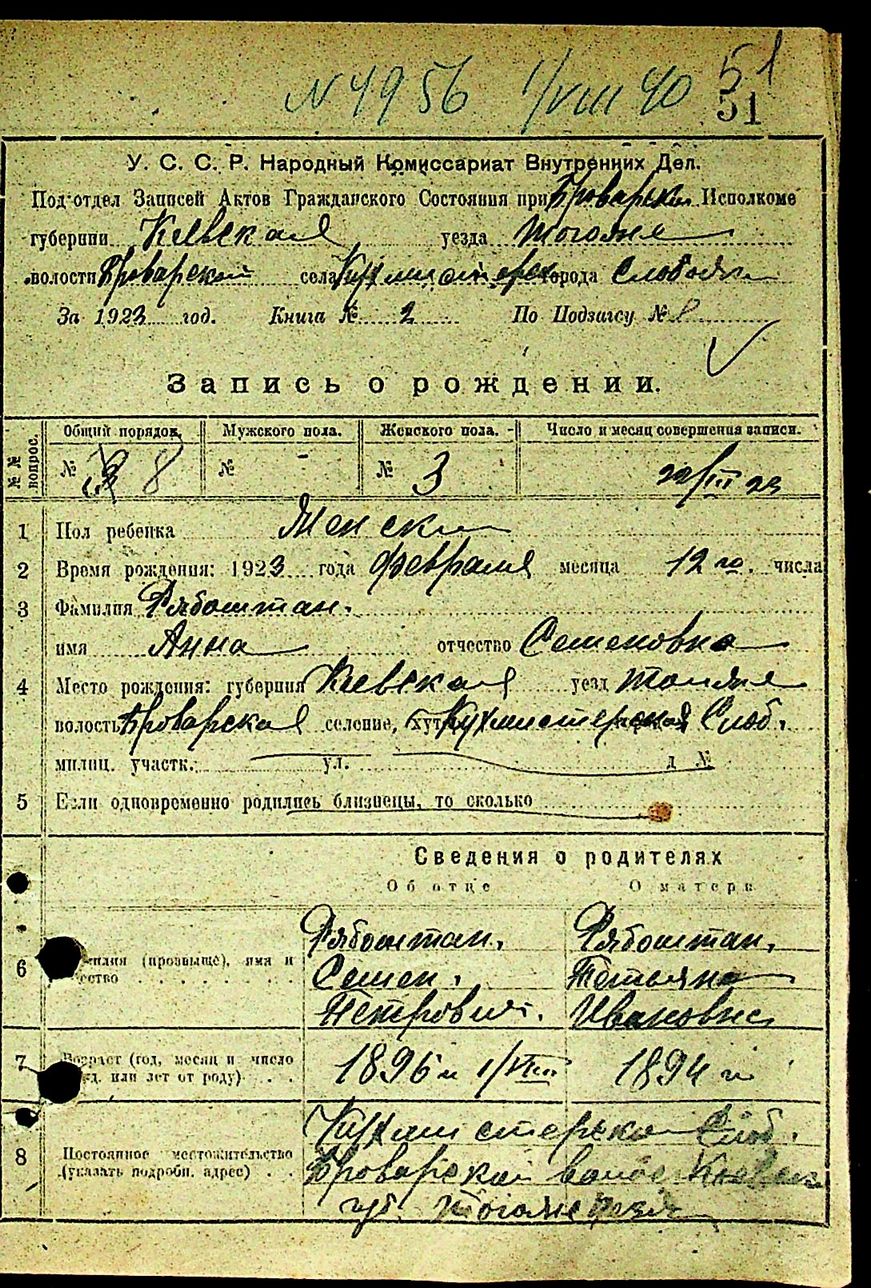 N 4956 1/VIII 40 51
31
У. С. С. Р. Народный Комиссариат Внутренних Дел.
Под-отдел Записей Актов Гражданского Состояния при Броварском Исполкоме
губернии Киевская уезда тогоже
волости Броварской села Кухмистерск города Слободки
За 1923 год. Книга № 2 По Подзагсу №
Запись о рождении.
№№ вопрос. Общий порядок. Мужского пола. Женского пола. Число и месяц совершения записи.
№ 8 № - № 3 22/III 23
1 Пол ребенка Женский
2 Время рождения: 1923 года февраля месяца 12 го. числа
3 Фамилия Рябоштан.
имя Анна отчество Семеновна
4 Место рождения: губерния Киевская уезд тогоже
волость Броварская селение, хутор Кухмистерская Слоб.
милиц. участк. ул. д №
5 Если одновременно родились близнецы, то сколько
Сведения о родителях
Об отце О матери
Рябоштан. Рябоштан.
6 милия (прозвище), имя и чество Семен. Татьяна
Петрович. Ивановна
7 Возраст (год, месяц и число жд. или лет от роду) 1896 г 1894 г
Кухмистерская Слоб.
8 Постоянное местожительство (указать подробн. адрес) Броварской волос Киевск
губ. тогоже уезд